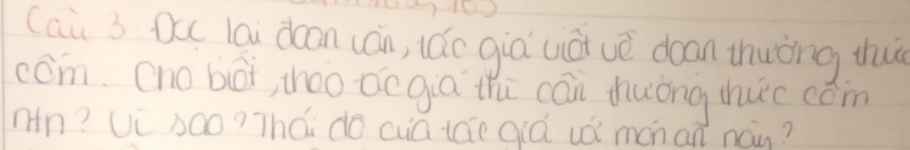 Câu 3 Đọc lại đoạn văn, tác giả viết về đoạn thưởng thức
cốm. Cho biết, theo tác giả thì cần thưởng thức cốm
ntn? Vì sao? Thái độ của tác giả với món ăn này?